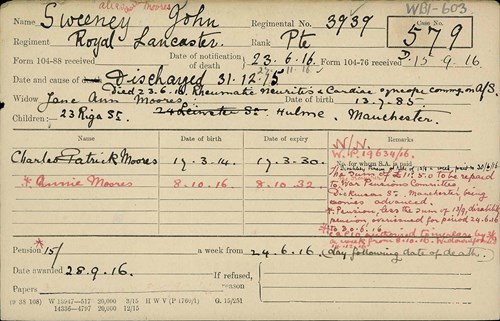 alias Moores
Name Sweeney John Regimental No. 3939 WB1-603
Regiment Royal Lancaster Rank Pte Case No. 579
Form 104-88 received Date of notification of death 23.6.16. Form 104-76 received 15.9.16.
Date and cause of death Discharged 31.12.15
Died 23.6.16. Rheumatic Neuritis & Cardiac syncope comm'g on A/S.
Widow Jane Ann Moores Date of birth 13.7.85.
Children:— 23 Riga St. 24 Leinster St. Hulme, Manchester.
Name Date of birth Date of expiry Remarks
No. for whom S.A. is paid
N/N.
W.P. 19634/16.
Charles Patrick Moores 17.3.14. 17.3.30.
* Annie Moores 8.10.16. 8.10.32.
sum of £11:5:0 to be repaid
to War Pensions Committee,
Dickinson St. Manchester, being
monies advanced.
* Pension, less the sum of
pension overissued for period 24.6.16
Pension 15/ a week from 24.6.16. (day following date of death.)
Date awarded 28.9.16. If refused,
Papers reason
(9 38 103) W 15947—517 20,000 3/15 H W V (P 1760/1) G. 15/251
14336—4797 20,000 12/15